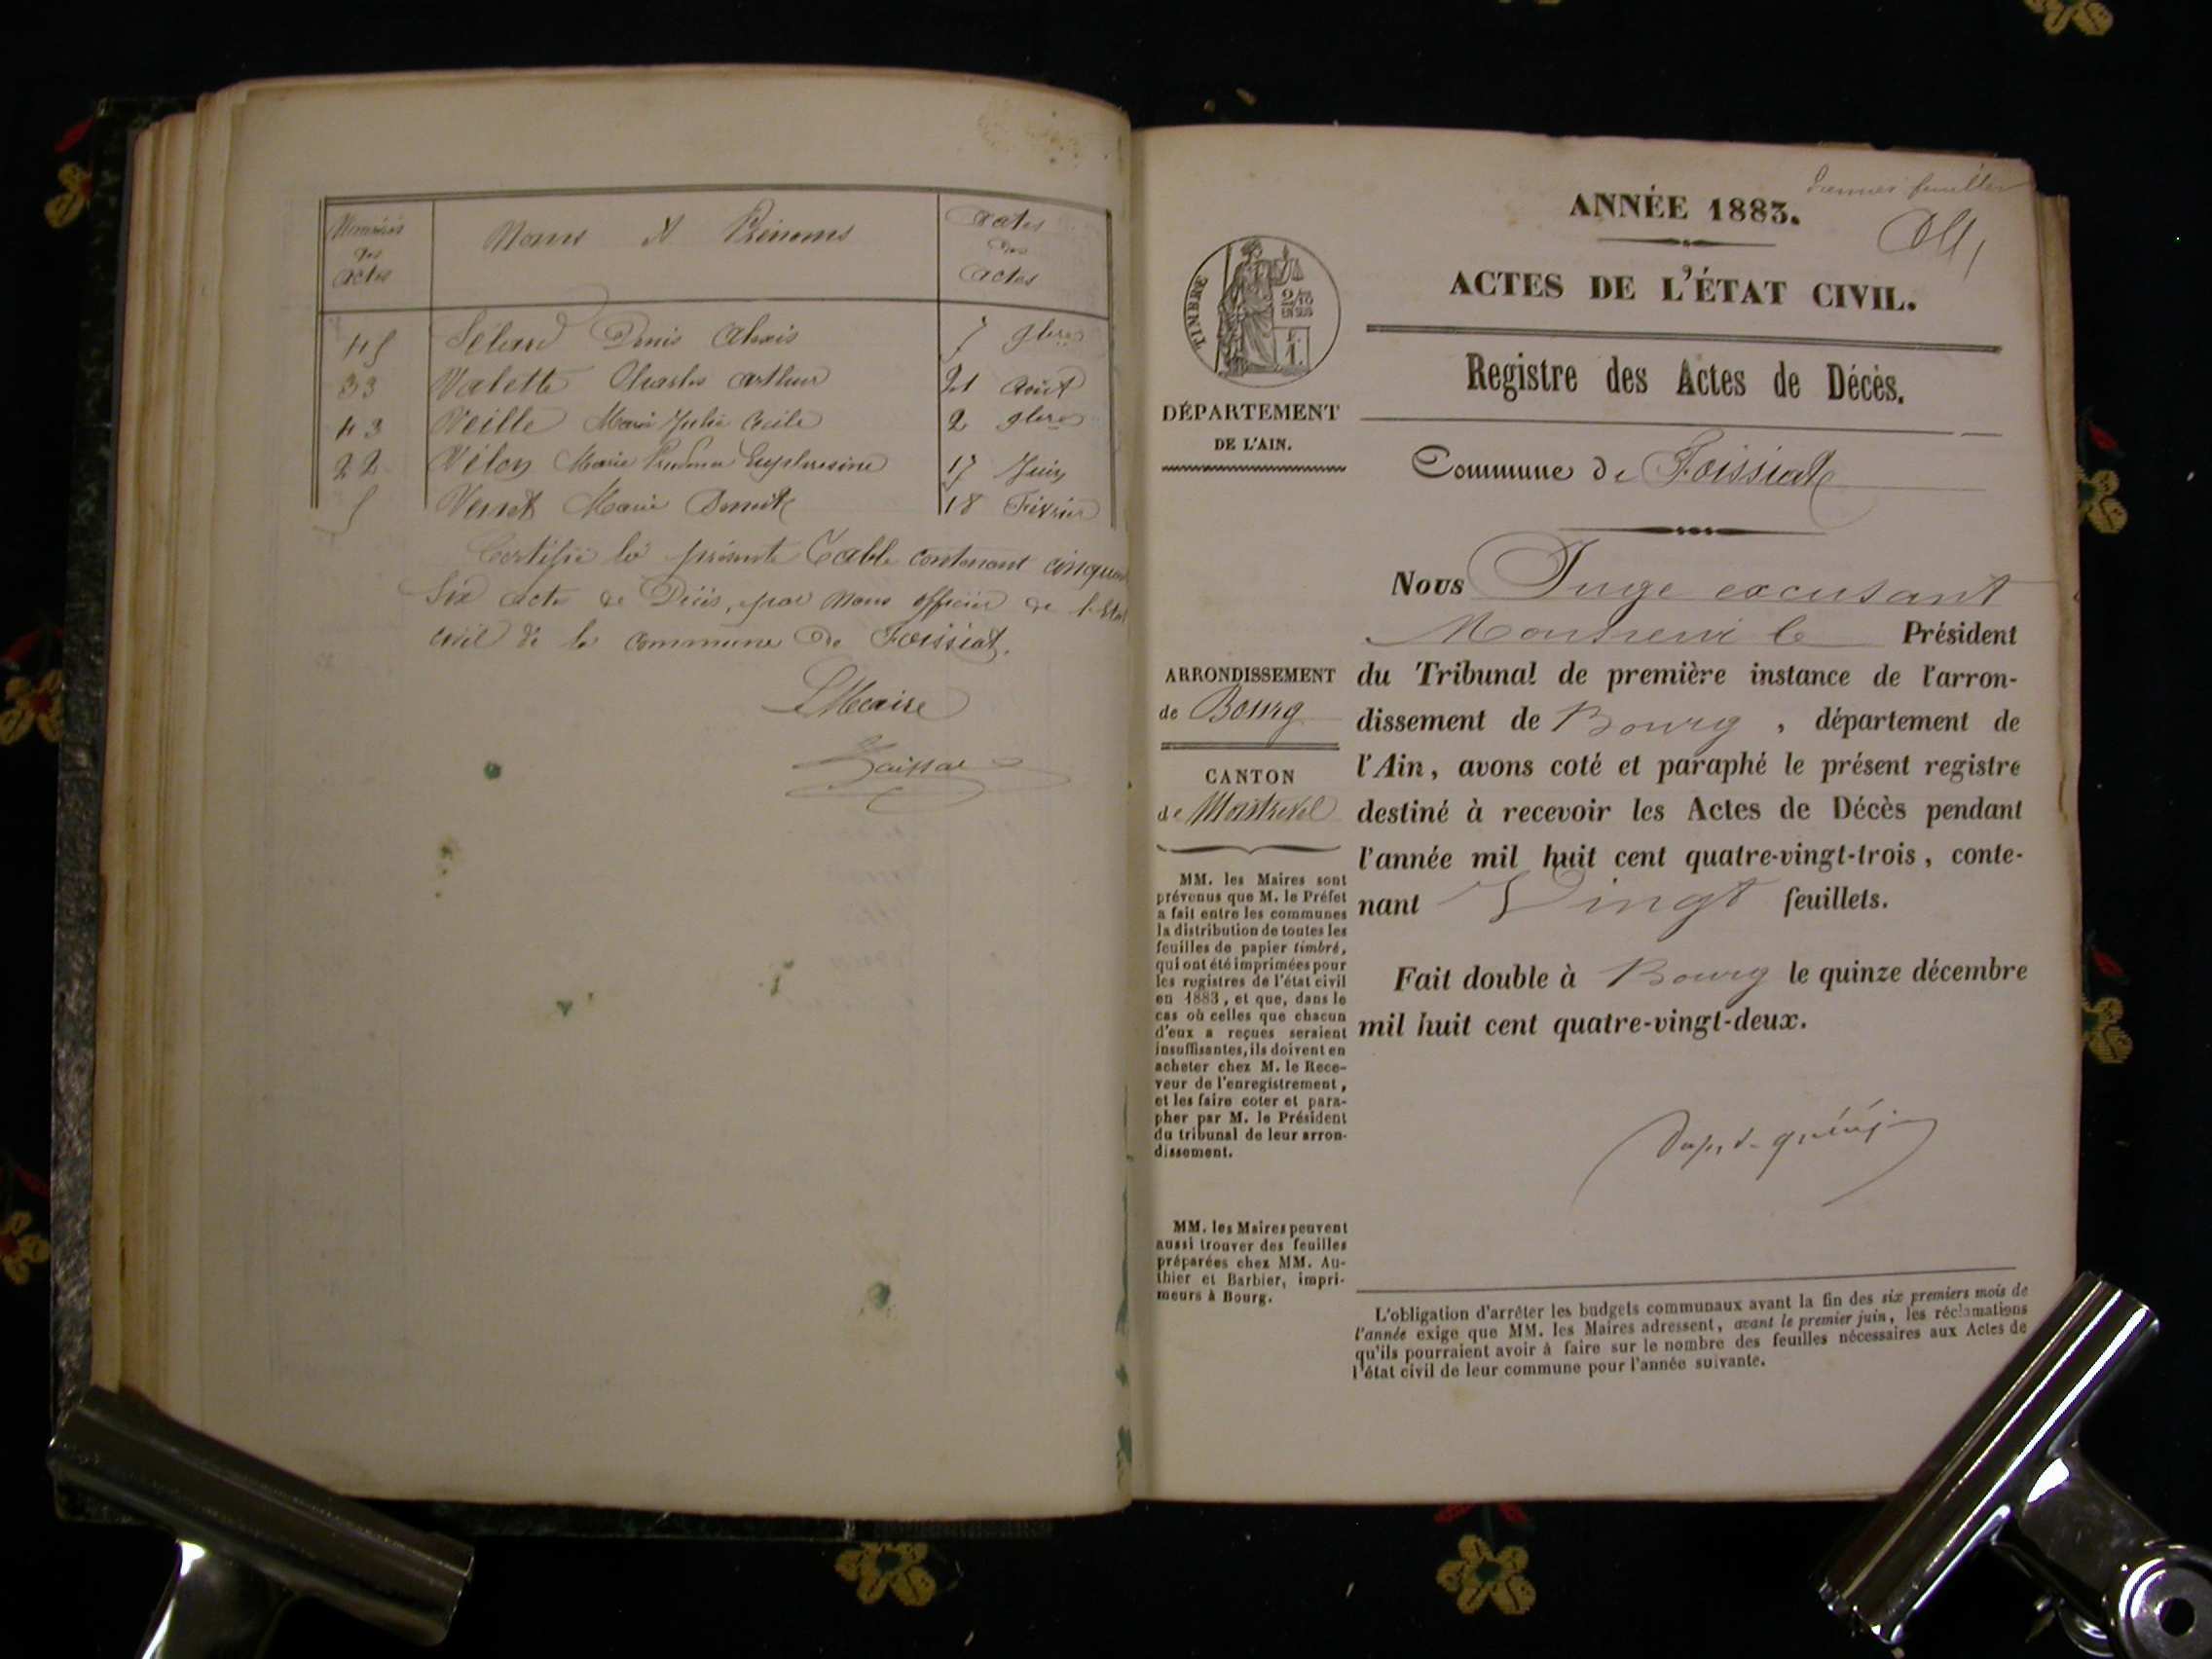 Numéros des actes
Noms et Prénoms
Dates des actes
45 Denis Alexis 7 9bre
33 Valette Charles Arthur 21 Août
43 Veille Marie Julie Cécile 2 9bre
22 Vélon Marie Euphrosine 17 Juin
5 Marie Benoite 18 Février
Certifié la présente Table contenant cinquante
Six actes de Décès, par Nous officier de l'Etat
civil de la commune de Foissiat.
Le Maire
premier feuillet
ANNÉE 1883.
ACTES DE L'ÉTAT CIVIL.
TIMBRE
2/10
EN SUS
F.
1.
Registre des Actes de Décès.
DÉPARTEMENT
DE L'AIN.
Commune de Foissiat
Nous Juge excusant
Monsieur le Président
du Tribunal de première instance de l'arron-
dissement de Bourg, département de
l'Ain, avons coté et paraphé le présent registre
destiné à recevoir les Actes de Décès pendant
l'année mil huit cent quatre-vingt-trois, conte-
nant Vingt feuillets.
Fait double à Bourg le quinze décembre
mil huit cent quatre-vingt-deux.
ARRONDISSEMENT
de Bourg
CANTON
de Montrevel
MM. les Maires sont
prévenus que M. le Préfet
a fait entre les communes
la distribution de toutes les
feuilles de papier timbré,
qui ont été imprimées pour
les registres de l'état civil
en 1883, et que, dans le
cas où celles que chacun
d'eux a reçues seraient
insuffisantes, ils doivent en
acheter chez M. le Rece-
veur de l'enregistrement,
et les faire coter et para-
pher par M. le Président
du tribunal de leur arron-
dissement.
MM. les Maires peuvent
aussi trouver des feuilles
préparées chez MM. Au-
thier et Barbier, impri-
meurs à Bourg.
L'obligation d'arrêter les budgets communaux avant la fin des six premiers mois de
l'année exige que MM. les Maires adressent, avant le premier juin, les réclamations
qu'ils pourraient avoir à faire sur le nombre des feuilles nécessaires aux Actes de
l'état civil de leur commune pour l'année suivante.